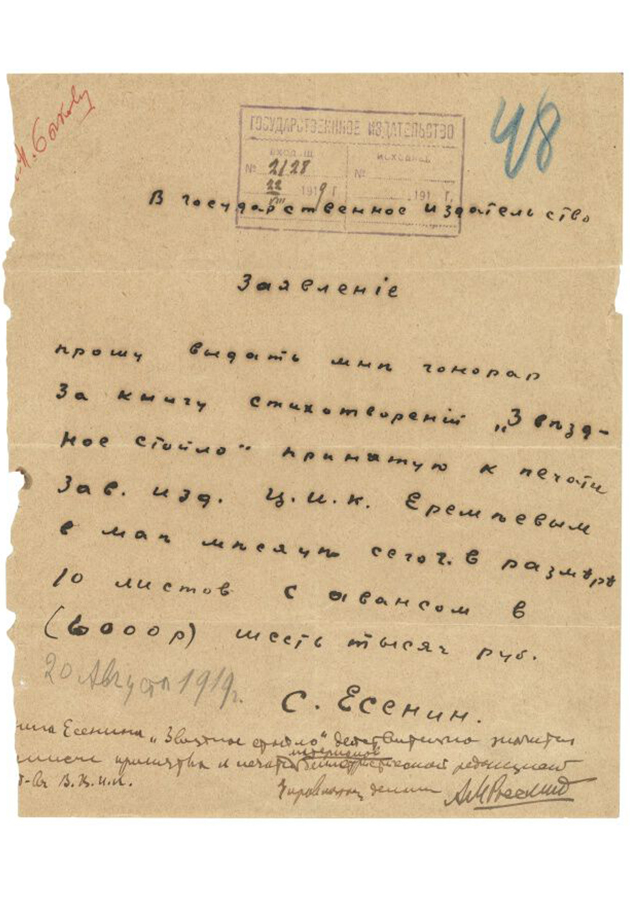 48
ГОСУДАРСТВЕННОЕ ИЗДАТЕЛЬСТВО
ВХОДЯЩ ИСХОДЯЩ
№ 2128 №
22/VIII 1919 г. 191 г.
В государственное издательство
Заявленіе
прошу выдать мнѣ гонорар
За книгу стихотвореній „Звѣзд-
ное стойло" принятую к печати
Зав. изд. Ц.И.К. Еремѣевым
в маѣ мѣсяцѣ сего г. в размѣрѣ
10 листов с авансом в
(6000р) шесть тысяч руб.
20 Августа 1919г.
С. Есенин.
Есенина „Звездное стойло" действительно значится
принятых к печати редакцией
В.Ц.И.К.
Управляющ делами